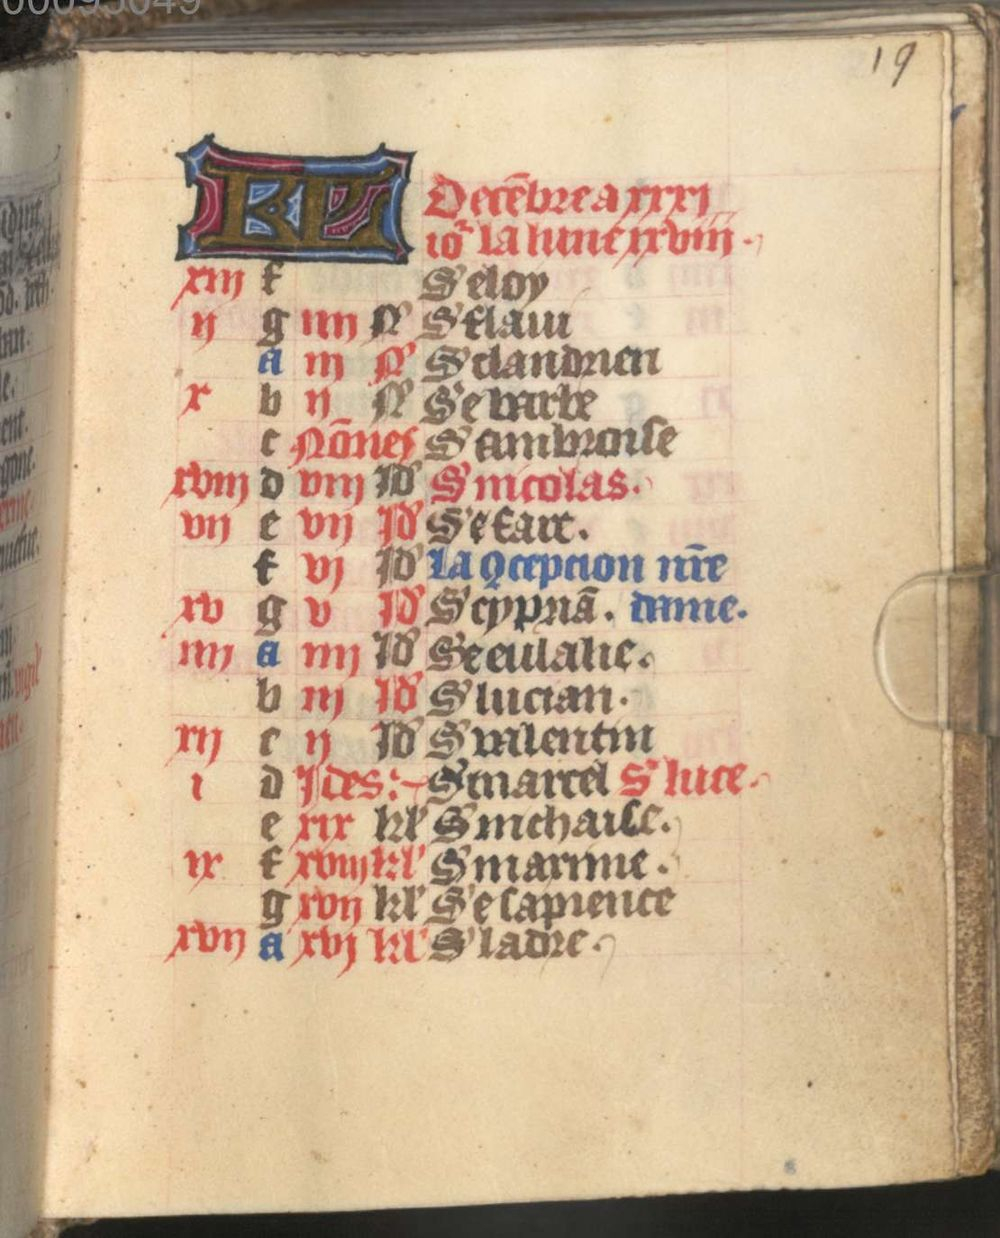 19
KL Decẽbre a xxxi
io᷒ la lune xxviii.
xiii f S eloy
ii g iiii Nͦ S flaui
a iii Nͦ S clandrien
x b ii Nͦ Se barbe
c Nõnes S ambroise
xviii d viii Id' S nicolas.
vii e vii Id' Se fare.
f vi Id' la ꝯcepcion nr̃e
xv g v Id' S cypriã. dame.
iiii a iiii Id' Se eulalie.
b iii Id' S lucian.
xii c ii Id' S valentin
i d Ides:~ S marcel Se luce.
e xix kl' S nichaise.
ix f xviii kl' S maxime.
g xvii kl' Se sapience
xvii a xvi kl' S ladre.